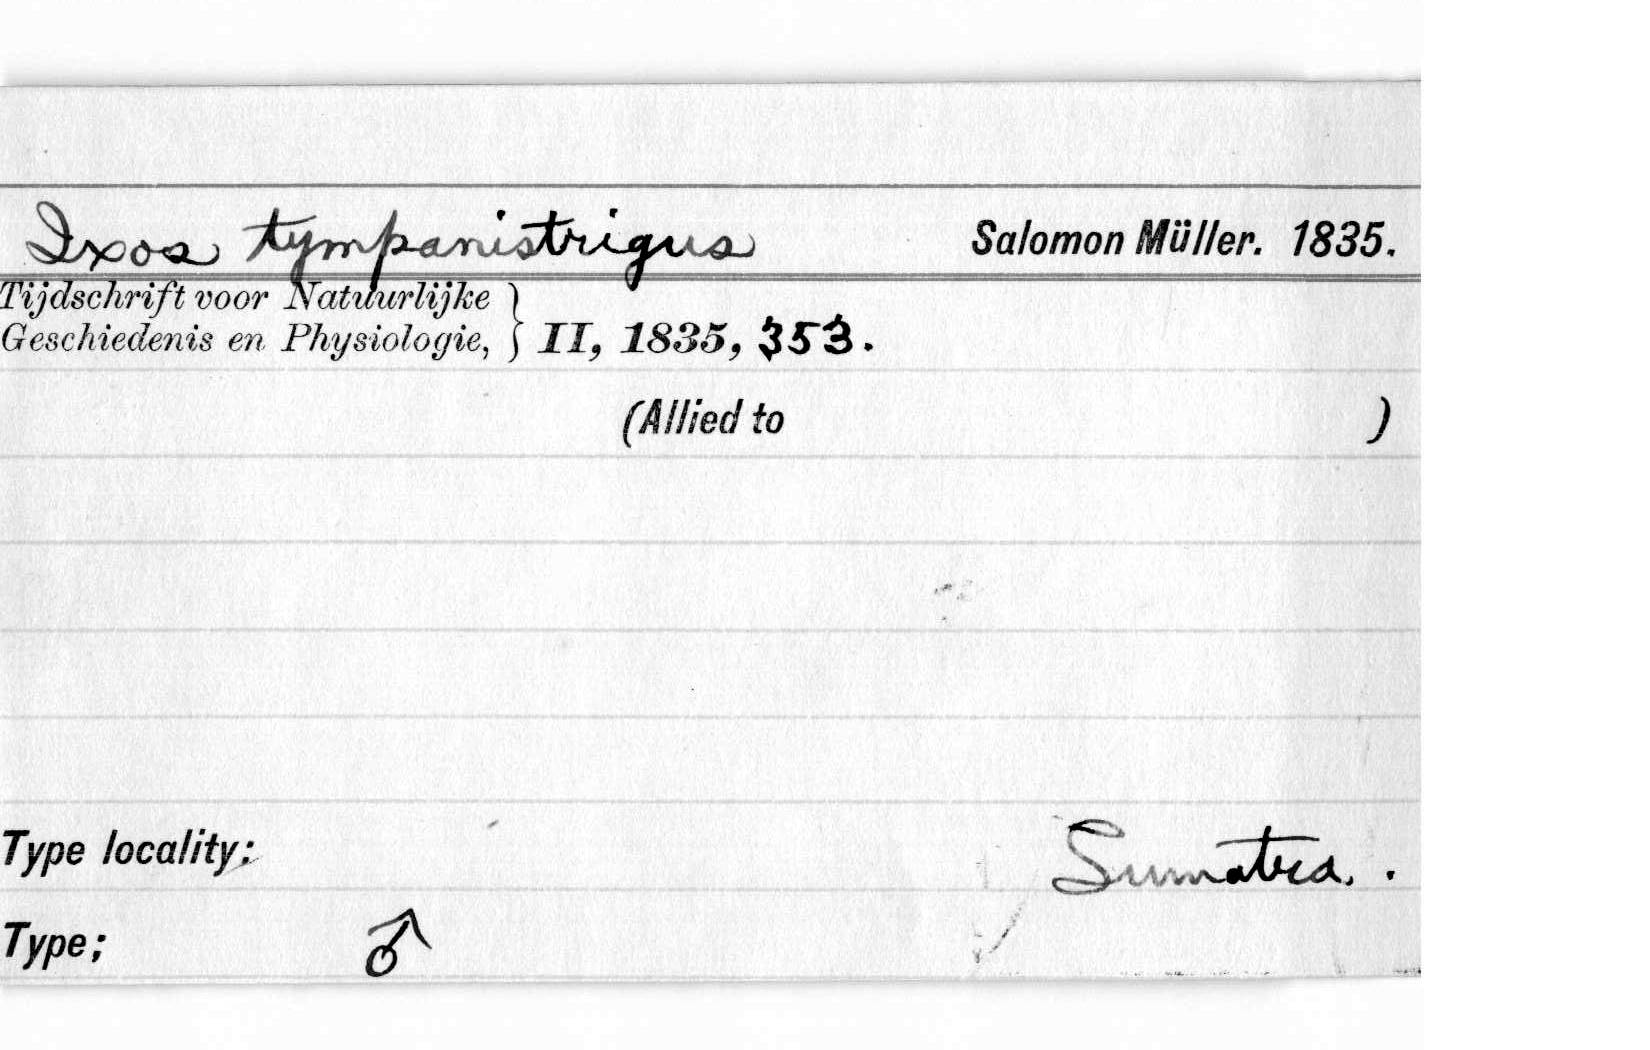 Ixos tympanistrigus Salomon Müller. 1835.
Tijdschrift voor Natuurlijke
Geschiedenis en Physiologie, } II, 1835, 353.
(Allied to )
Type locality: Sumatra.
Type; ♂